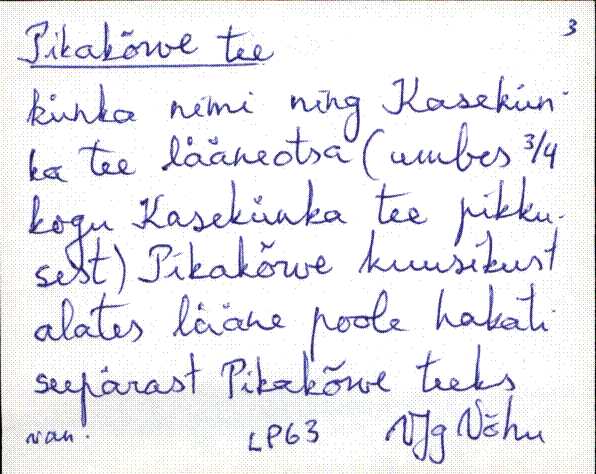 3
Pikakõrve tee
künka nimi ning Kasekün-
ka tee lääneotsa (umbes 3/4
kogu Kasekünka tee pikku-
sest) Pikakõrve kuusikust
alates lääne poole hakati
seepärast Pikakõrve teeks
van. LP63 VJg Võhu